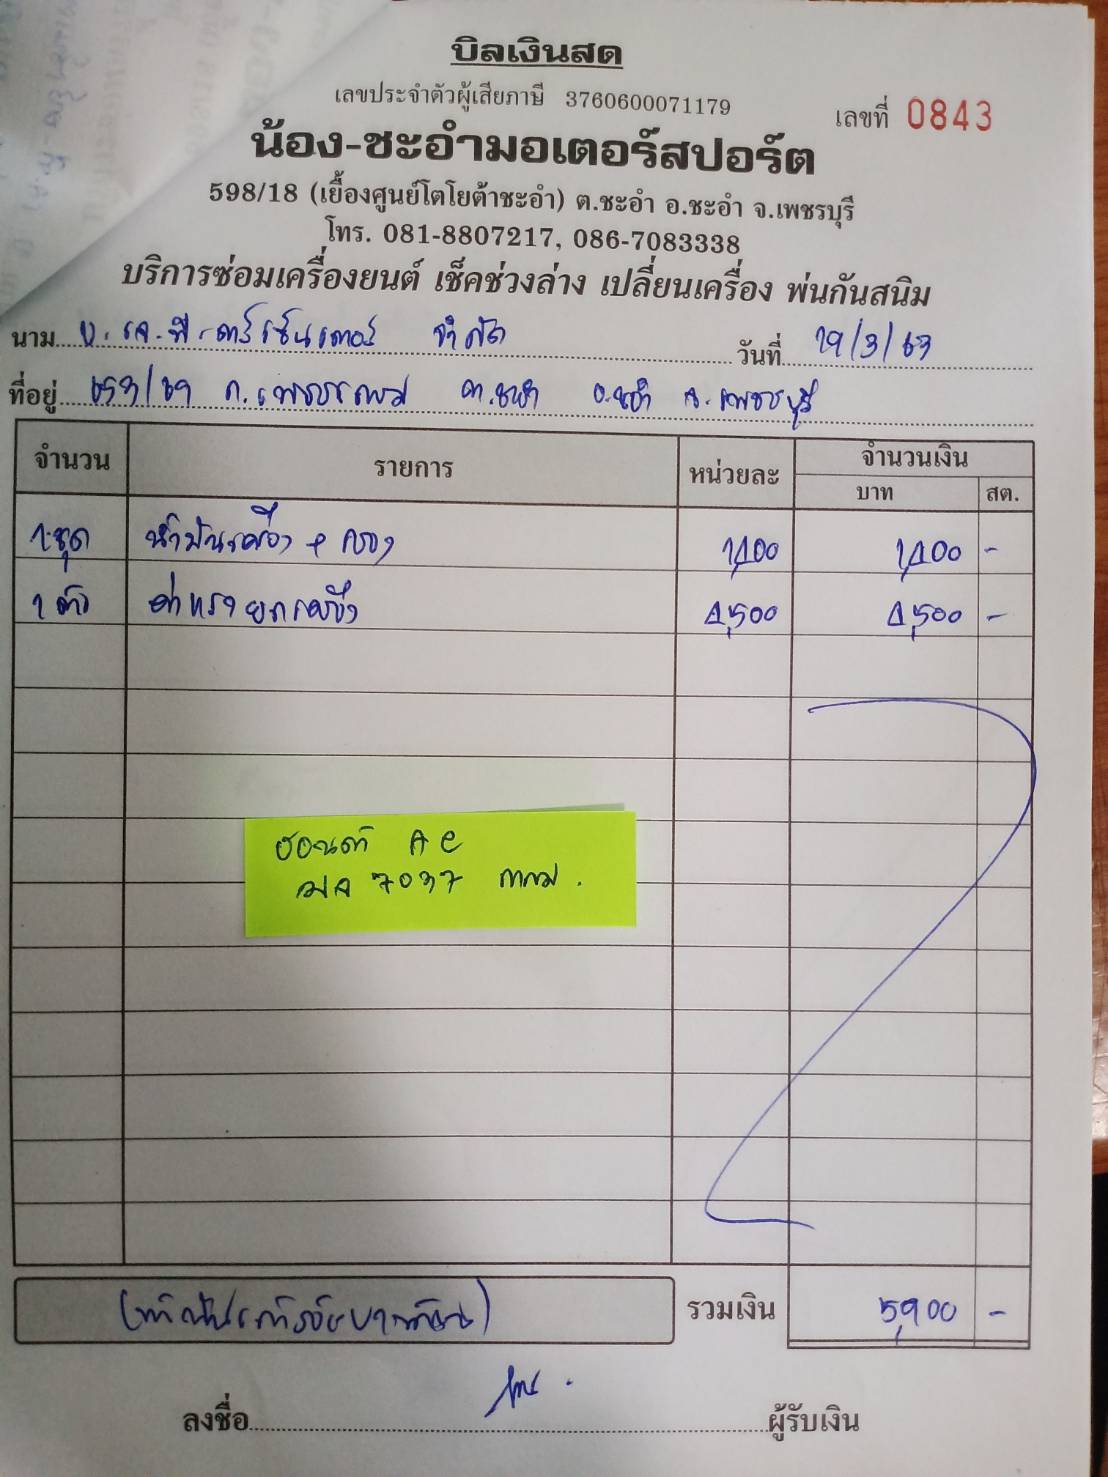 บิลเงินสด
เลขประจำตัวผู้เสียภาษี 3760600071179
เลขที่ 0843
น้อง-ชะอำมอเตอร์สปอร์ต
598/18 (เยื้องศูนย์โตโยต้าชะอำ) ต.ชะอำ อ.ชะอำ จ.เพชรบุรี
โทร. 081-8807217, 086-7083338
บริการซ่อมเครื่องยนต์ เช็คช่วงล่าง เปลี่ยนเครื่อง พ่นกันสนิม
นาม บ. เจ.พี.คาร์เซ็นเตอร์ จำกัด วันที่ 29/3/63
ที่อยู่ ถ.เพชรเกษม ต.ชะอำ อ.ชะอำ จ.เพชรบุรี
จำนวน รายการ หน่วยละ จำนวนเงิน
บาท สต.
1 ชุด น้ำมันเครื่อง + กรอง 1,400 1,400 -
1 ตัว ค่าแรงยกเครื่อง 4,500 4,500 -
ฮอนด้า
7037 กทม.
(ห้าพันเก้าร้อยบาทถ้วน) รวมเงิน 5,900 -
ลงชื่อ ผู้รับเงิน